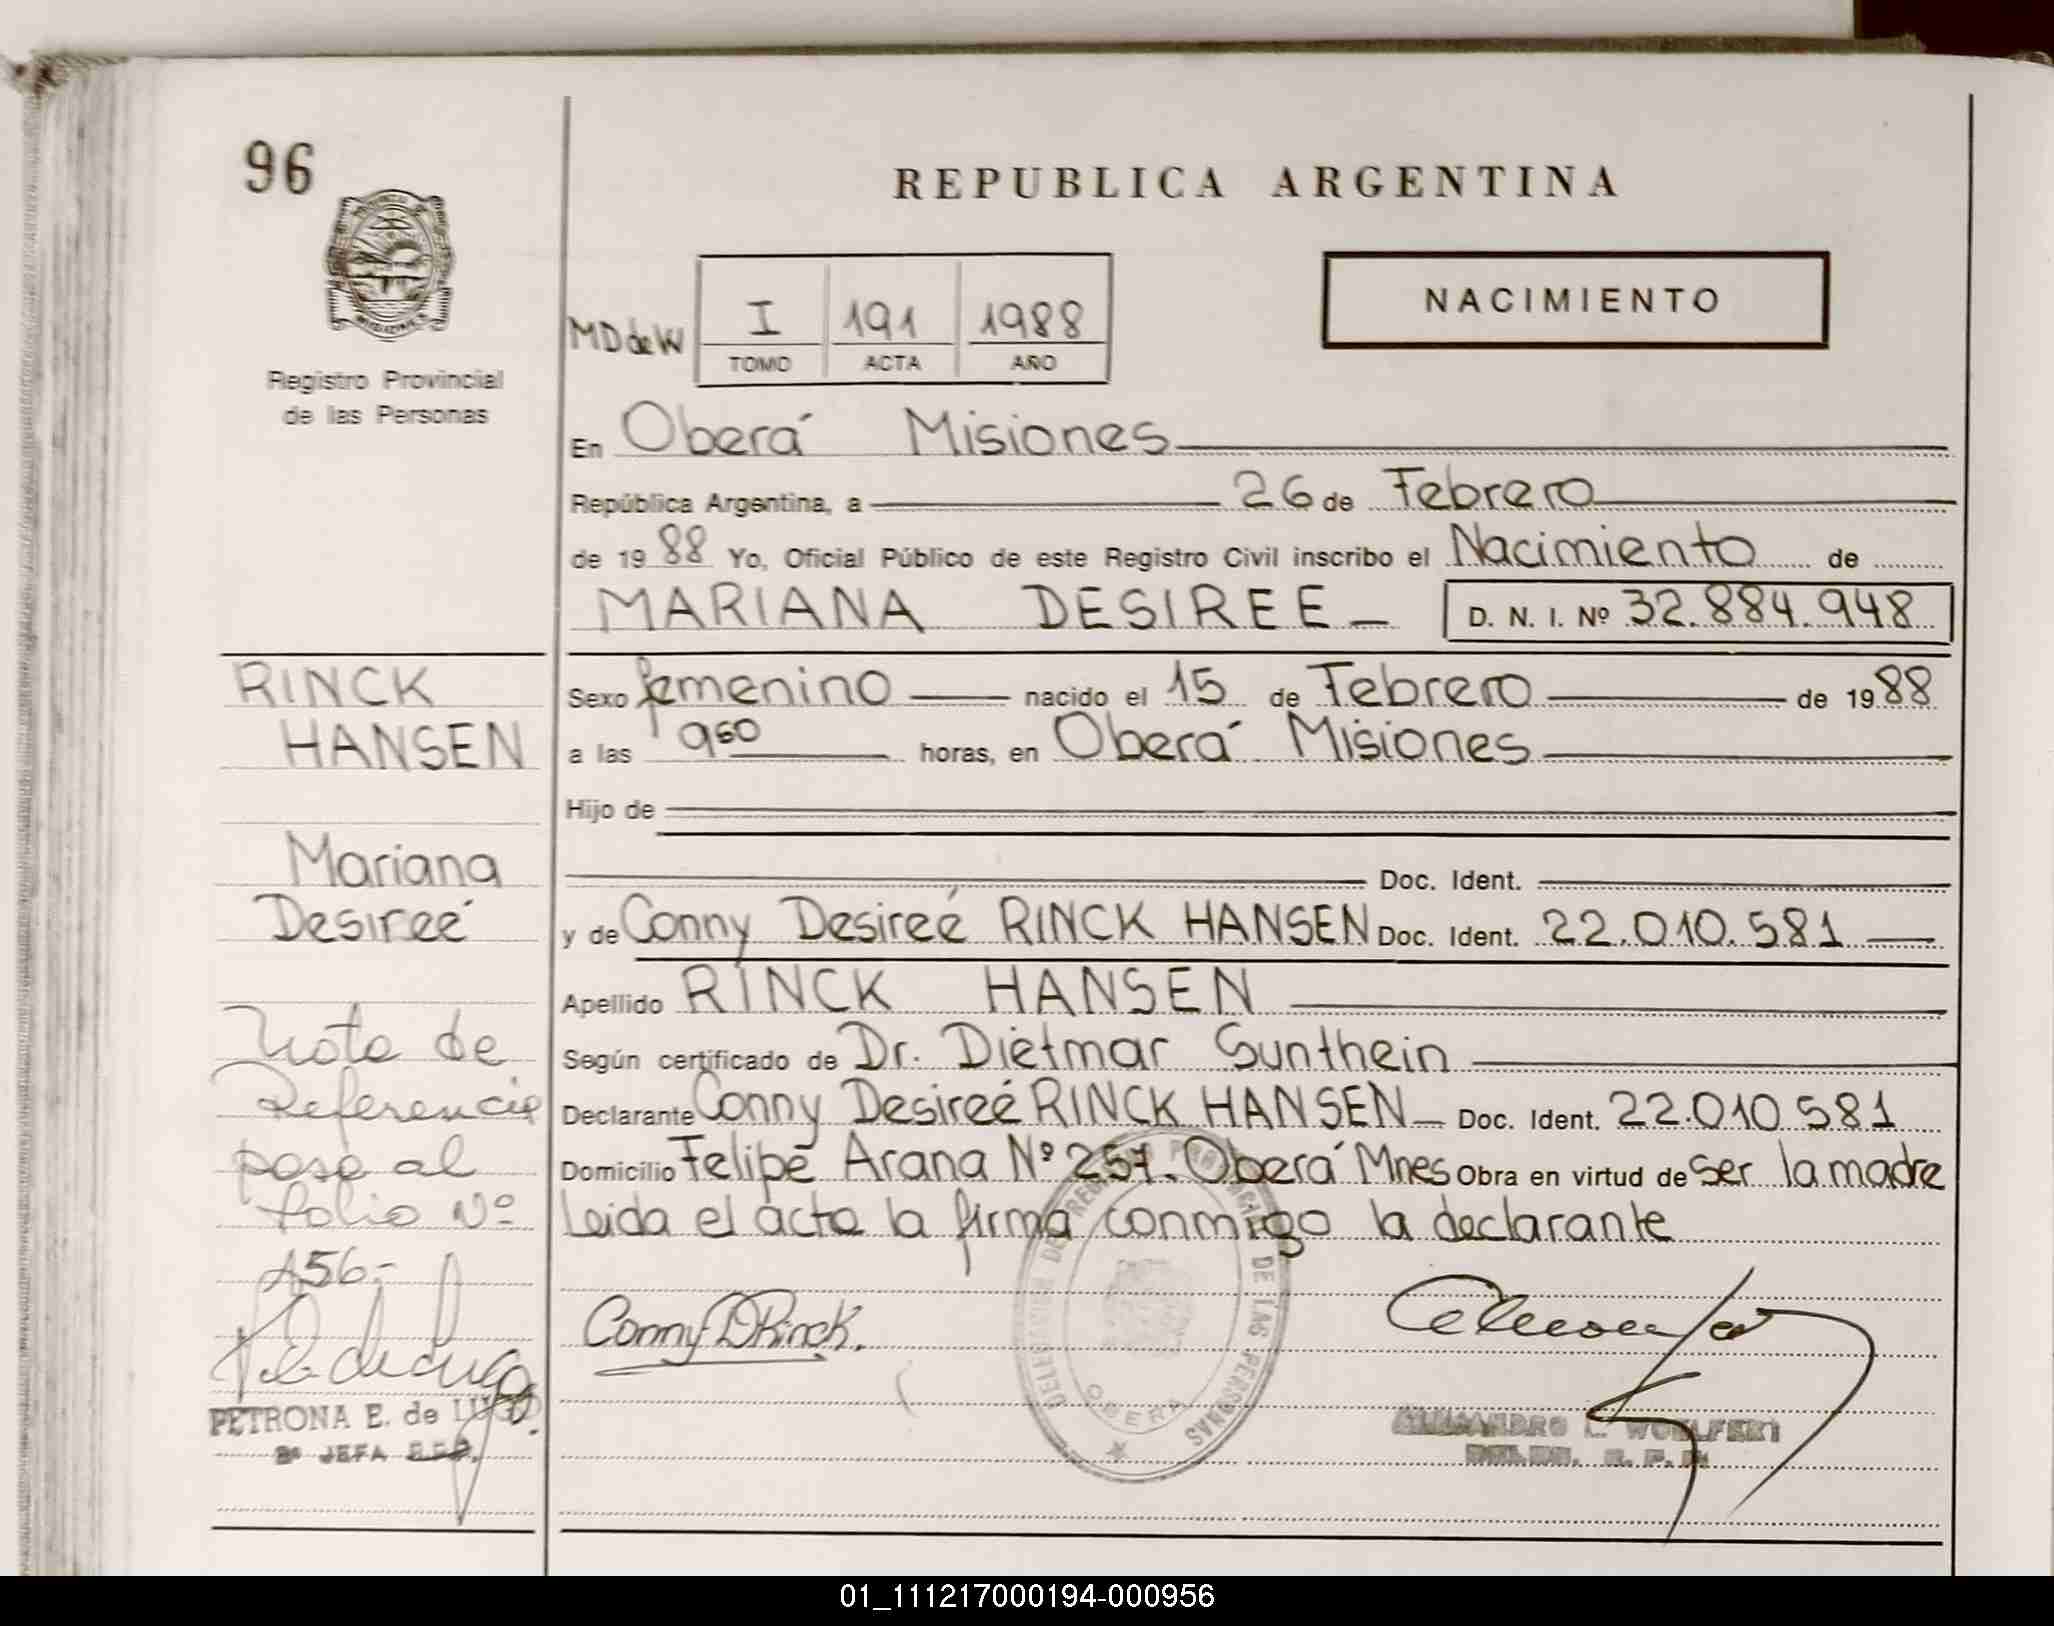 96
REPUBLICA ARGENTINA
NACIMIENTO
MD de W
I 191 1988
TOMO ACTA AÑO
Registro Provincial
de las Personas
En Oberá Misiones
República Argentina, a 26 de Febrero
de 1988 Yo, Oficial Público de este Registro Civil inscribo el Nacimiento de
MARIANA DESIREE D. N. I. Nº 32.884.948
RINCK
HANSEN
Mariana
Desireé
Nota de
Referencia
pase al
folio Nº
156-
PETRONA E. de LUGO
2ª JEFA R.P.P.
Sexo femenino nacido el 15 de Febrero de 1988
a las 950 horas, en Oberá Misiones
Hijo de
Doc. Ident.
y de Conny Desireé RINCK HANSEN Doc. Ident. 22.010.581
Apellido RINCK HANSEN
Según certificado de Dr. Dietmar Sunthein
Declarante Conny Desireé RINCK HANSEN Doc. Ident. 22.010.581
Domicilio Felipe Arana Nº 257. Oberá Mnes Obra en virtud de ser la madre
Leida el acta la firma conmigo la declarante
Conny D Rinck.
DELEGACION DEL REGISTRO PROVINCIAL DE LAS PERSONAS
OBERA
WOELFERT
01_111217000194-000956